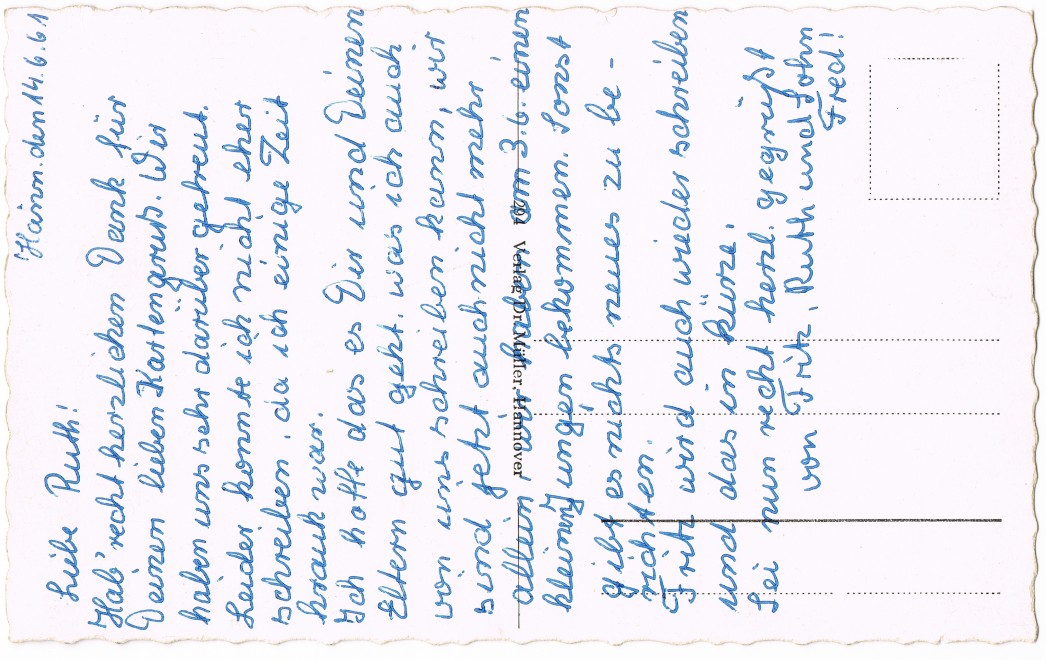 Hann. den 14.6.61
Liebe Ruth!
Hab' recht herzlichen Dank für
Deinen lieben Kartengruß. Wir
haben uns sehr darüber gefreut.
Leider konnte ich nicht eher
schreiben, da ich einige Zeit
krank war.
Ich hoffe das es Dir und Deinen
Eltern gut geht, was ich auch
von uns schreiben kann, wir
sind jetzt auch nicht mehr
allein, wir haben am 3.6. einen
kleinen Jungen bekommen. Sonst
gibt es nichts neues zu be-
richten.
Fritz wird auch wieder schreiben
und das in kürze.
Sei nun recht herzl. gegrüßt
von Fritz, Ruth und Sohn
Fred!
294 Verlag Dr. Müller-Hannover